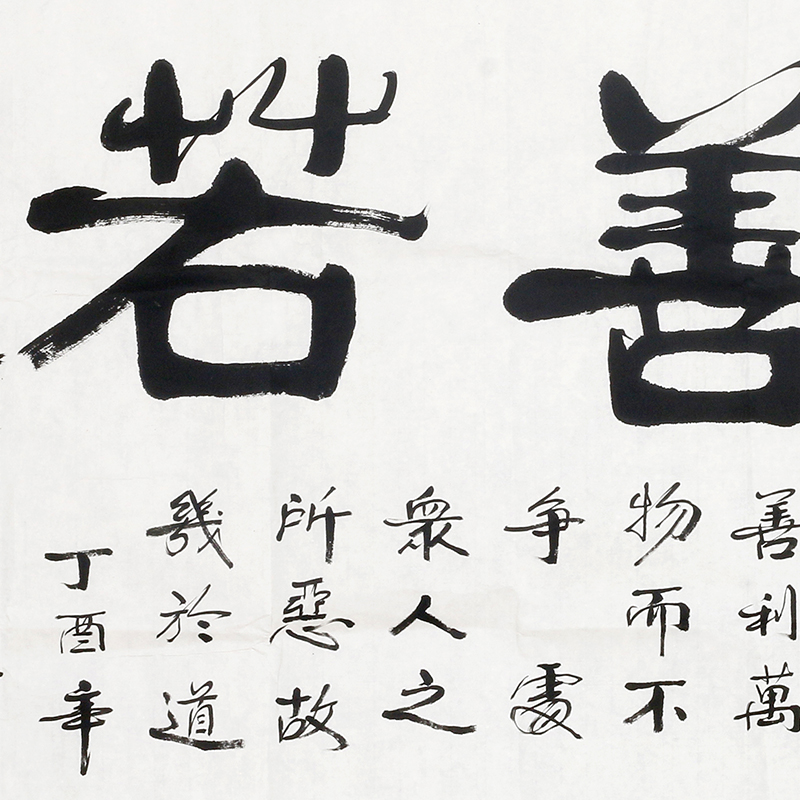 善若
善利萬
物而不
争處
衆人之
所惡故
幾於道
丁酉年